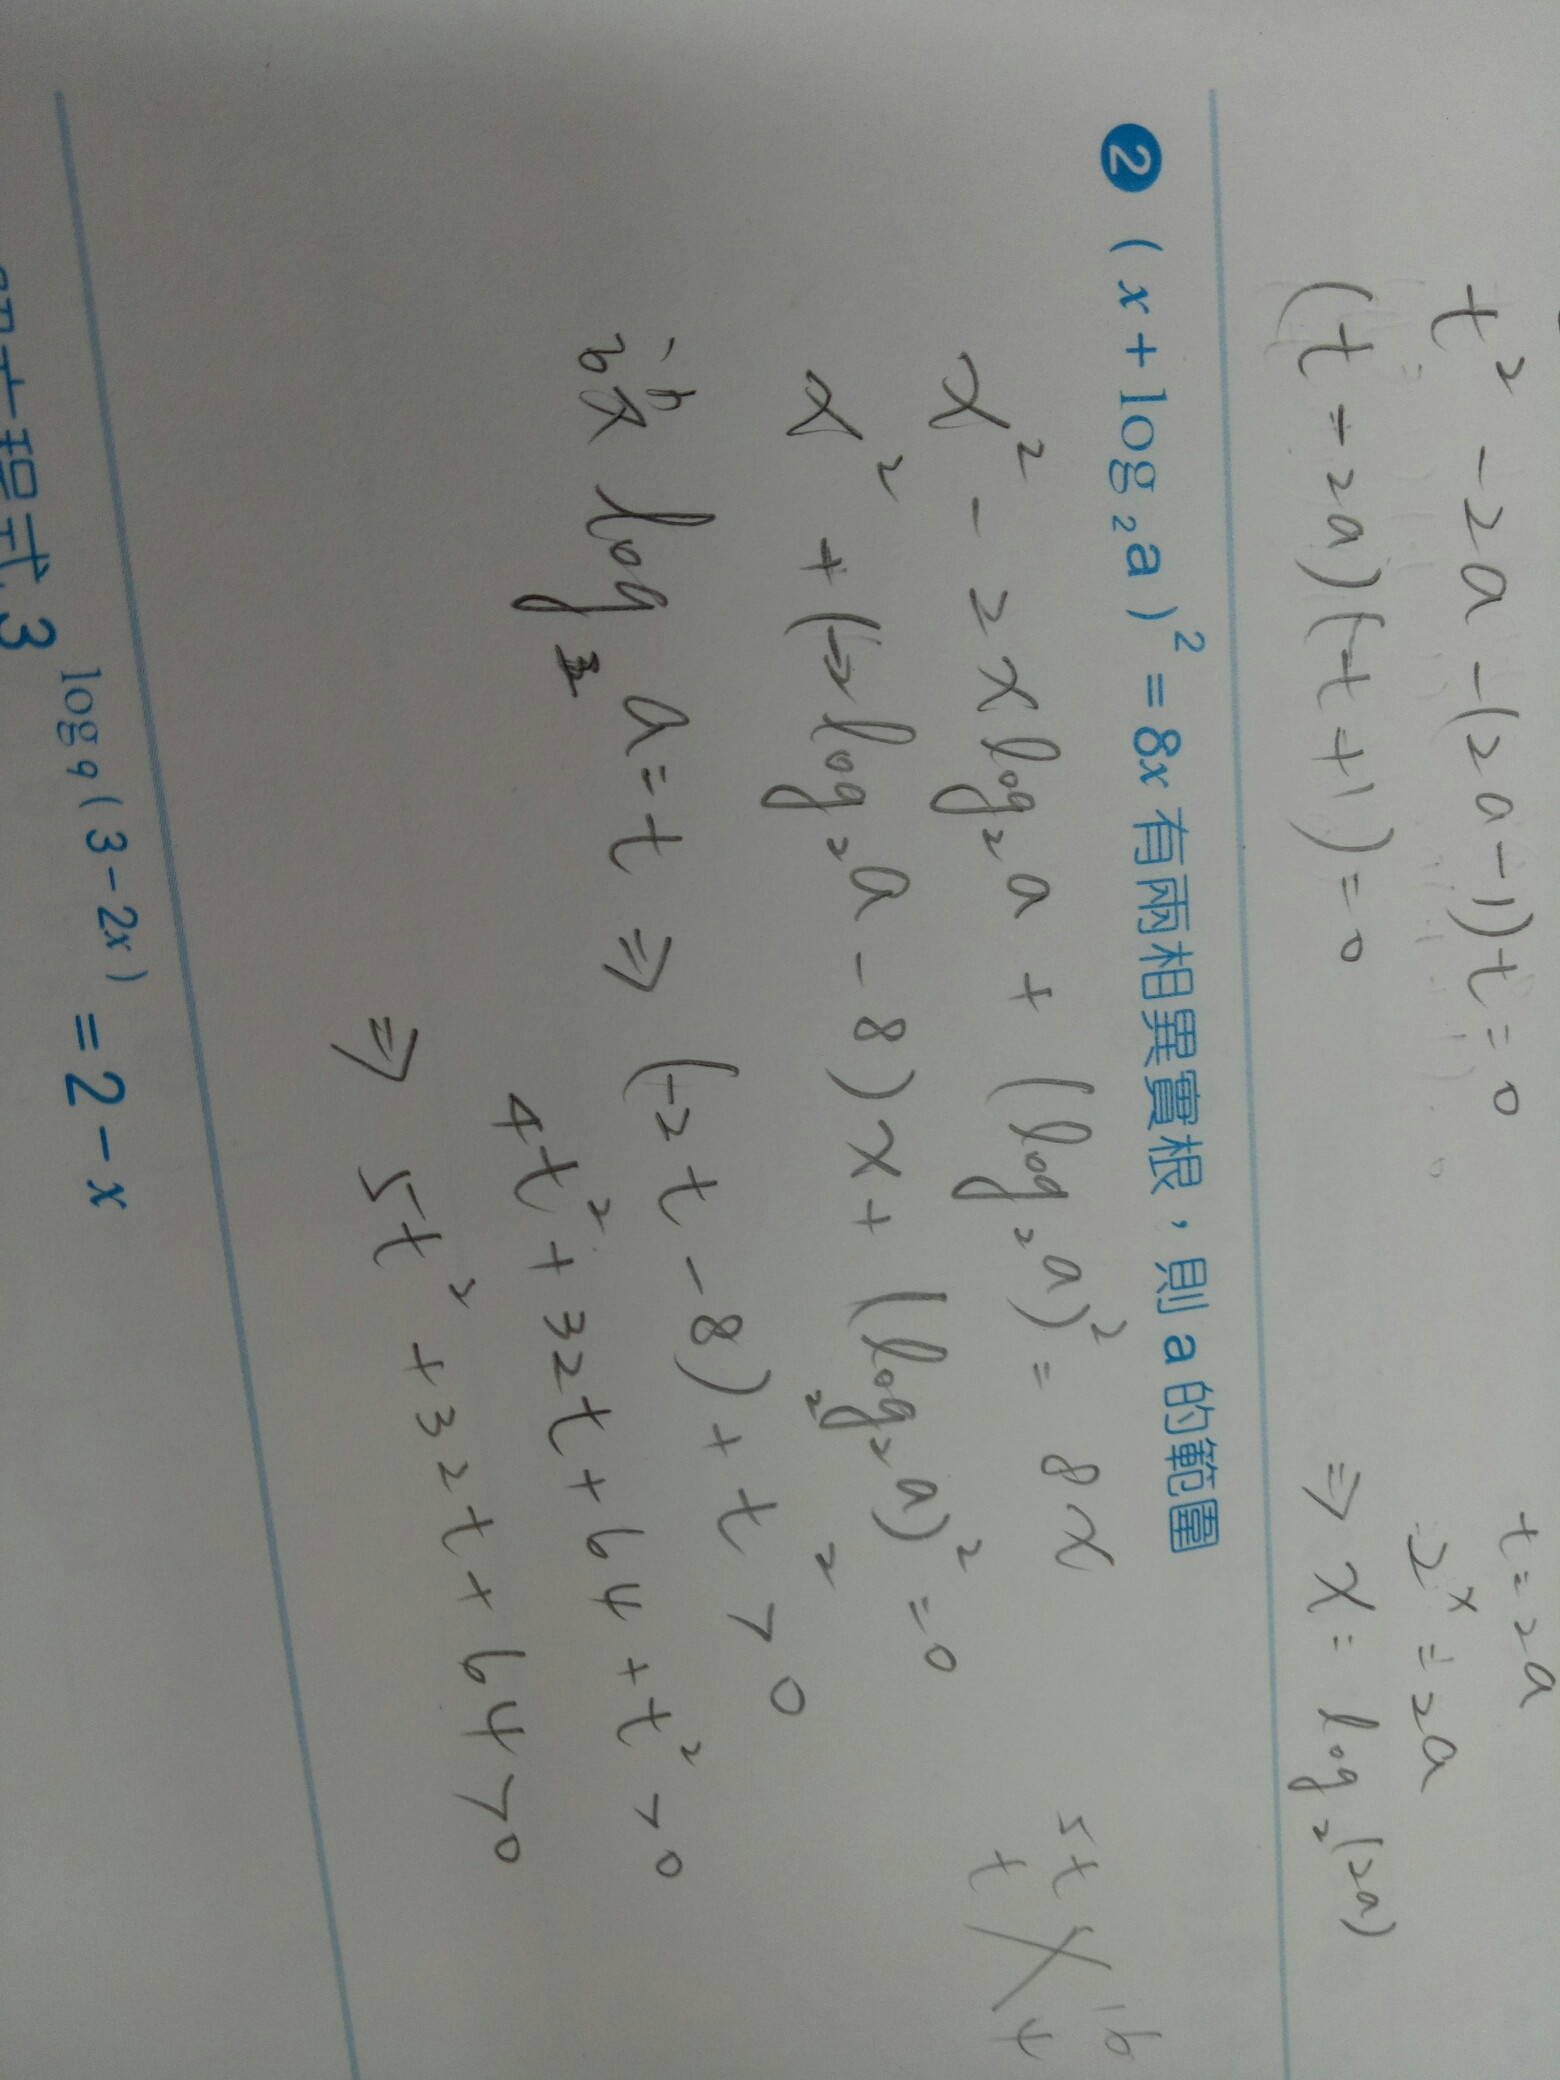 t² - 2a - (2a-1)t = 0
(t-2a)(t+1) = 0
t = 2a
2ˣ = 2a
⇒ x = log₂(2a)
❷ (x+log₂a)² = 8x 有兩相異實根，則 a 的範圍
x² - 2xlog₂a + (log₂a)² = 8x
x² + (-2log₂a - 8)x + (log₂a)² = 0
設 log₂a = t ⇒ (-2t-8)² + t² > 0
4t² + 32t + 64 + t² > 0
⇒ 5t² + 32t + 64 > 0
5t 16
t 4
程式 3^log₉(3-2x) = 2-x